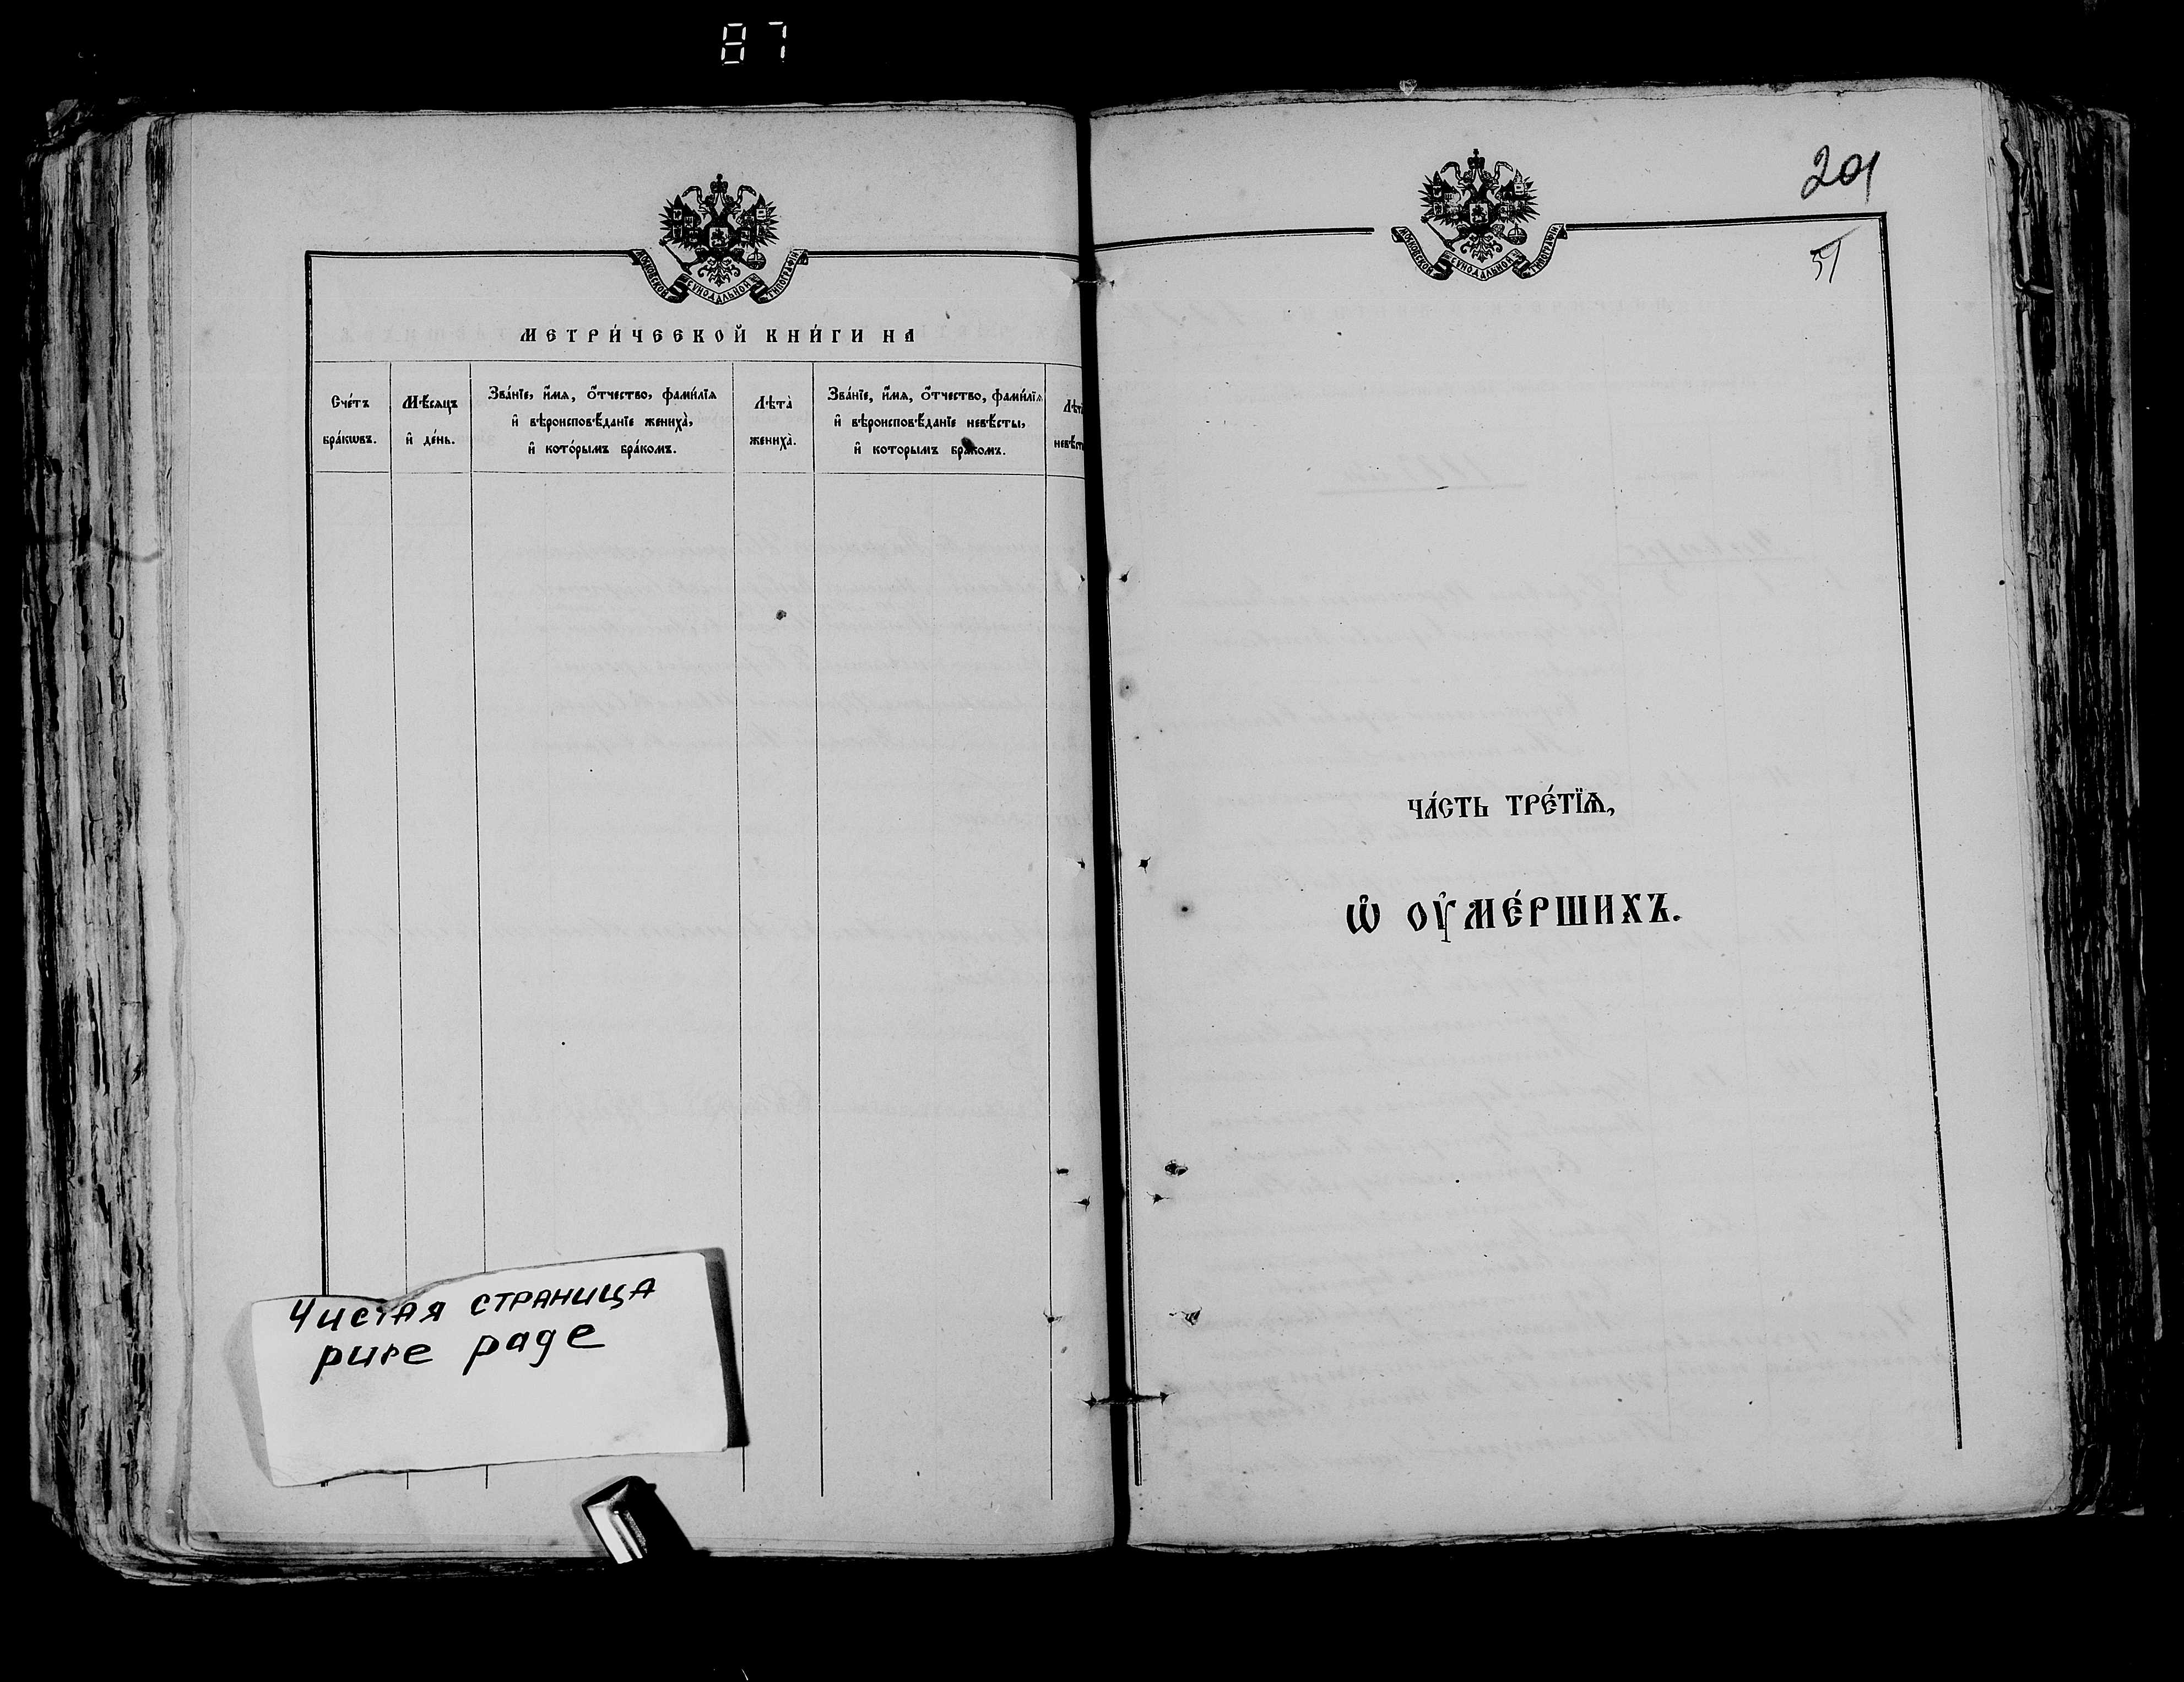 87
МОСКОВСКОЙ СѴНОДАЛЬНОЙ ТИПОГРАФІИ
МЕТРИ́ЧЕСКОЙ КНИ́ГИ НА
Сче́тъ
бра́кѡвъ.
Мѣ́сяцъ
и҆ де́нь.
Зва́нїе, и҆́мя, ѻ҆́тчество, фами́лїя
и҆ вѣроисповѣ́данїе жениха̀,
и҆ кото́рымъ бра́комъ.
Лѣта̀
жениха̀.
Зва́нїе, и҆́мя, ѻ҆́тчество, фами́лїя
и҆ вѣроисповѣ́данїе невѣ́сты,
и҆ кото́рымъ бра́комъ.
Чистая страница
pure page
201
51
МОСКОВСКОЙ СѴНОДАЛЬНОЙ ТИПОГРАФІИ
ЧА́СТЬ ТРЕ́ТЇѦ,
Ѡ҆ ОУ҆МЕ́РШИХЪ.